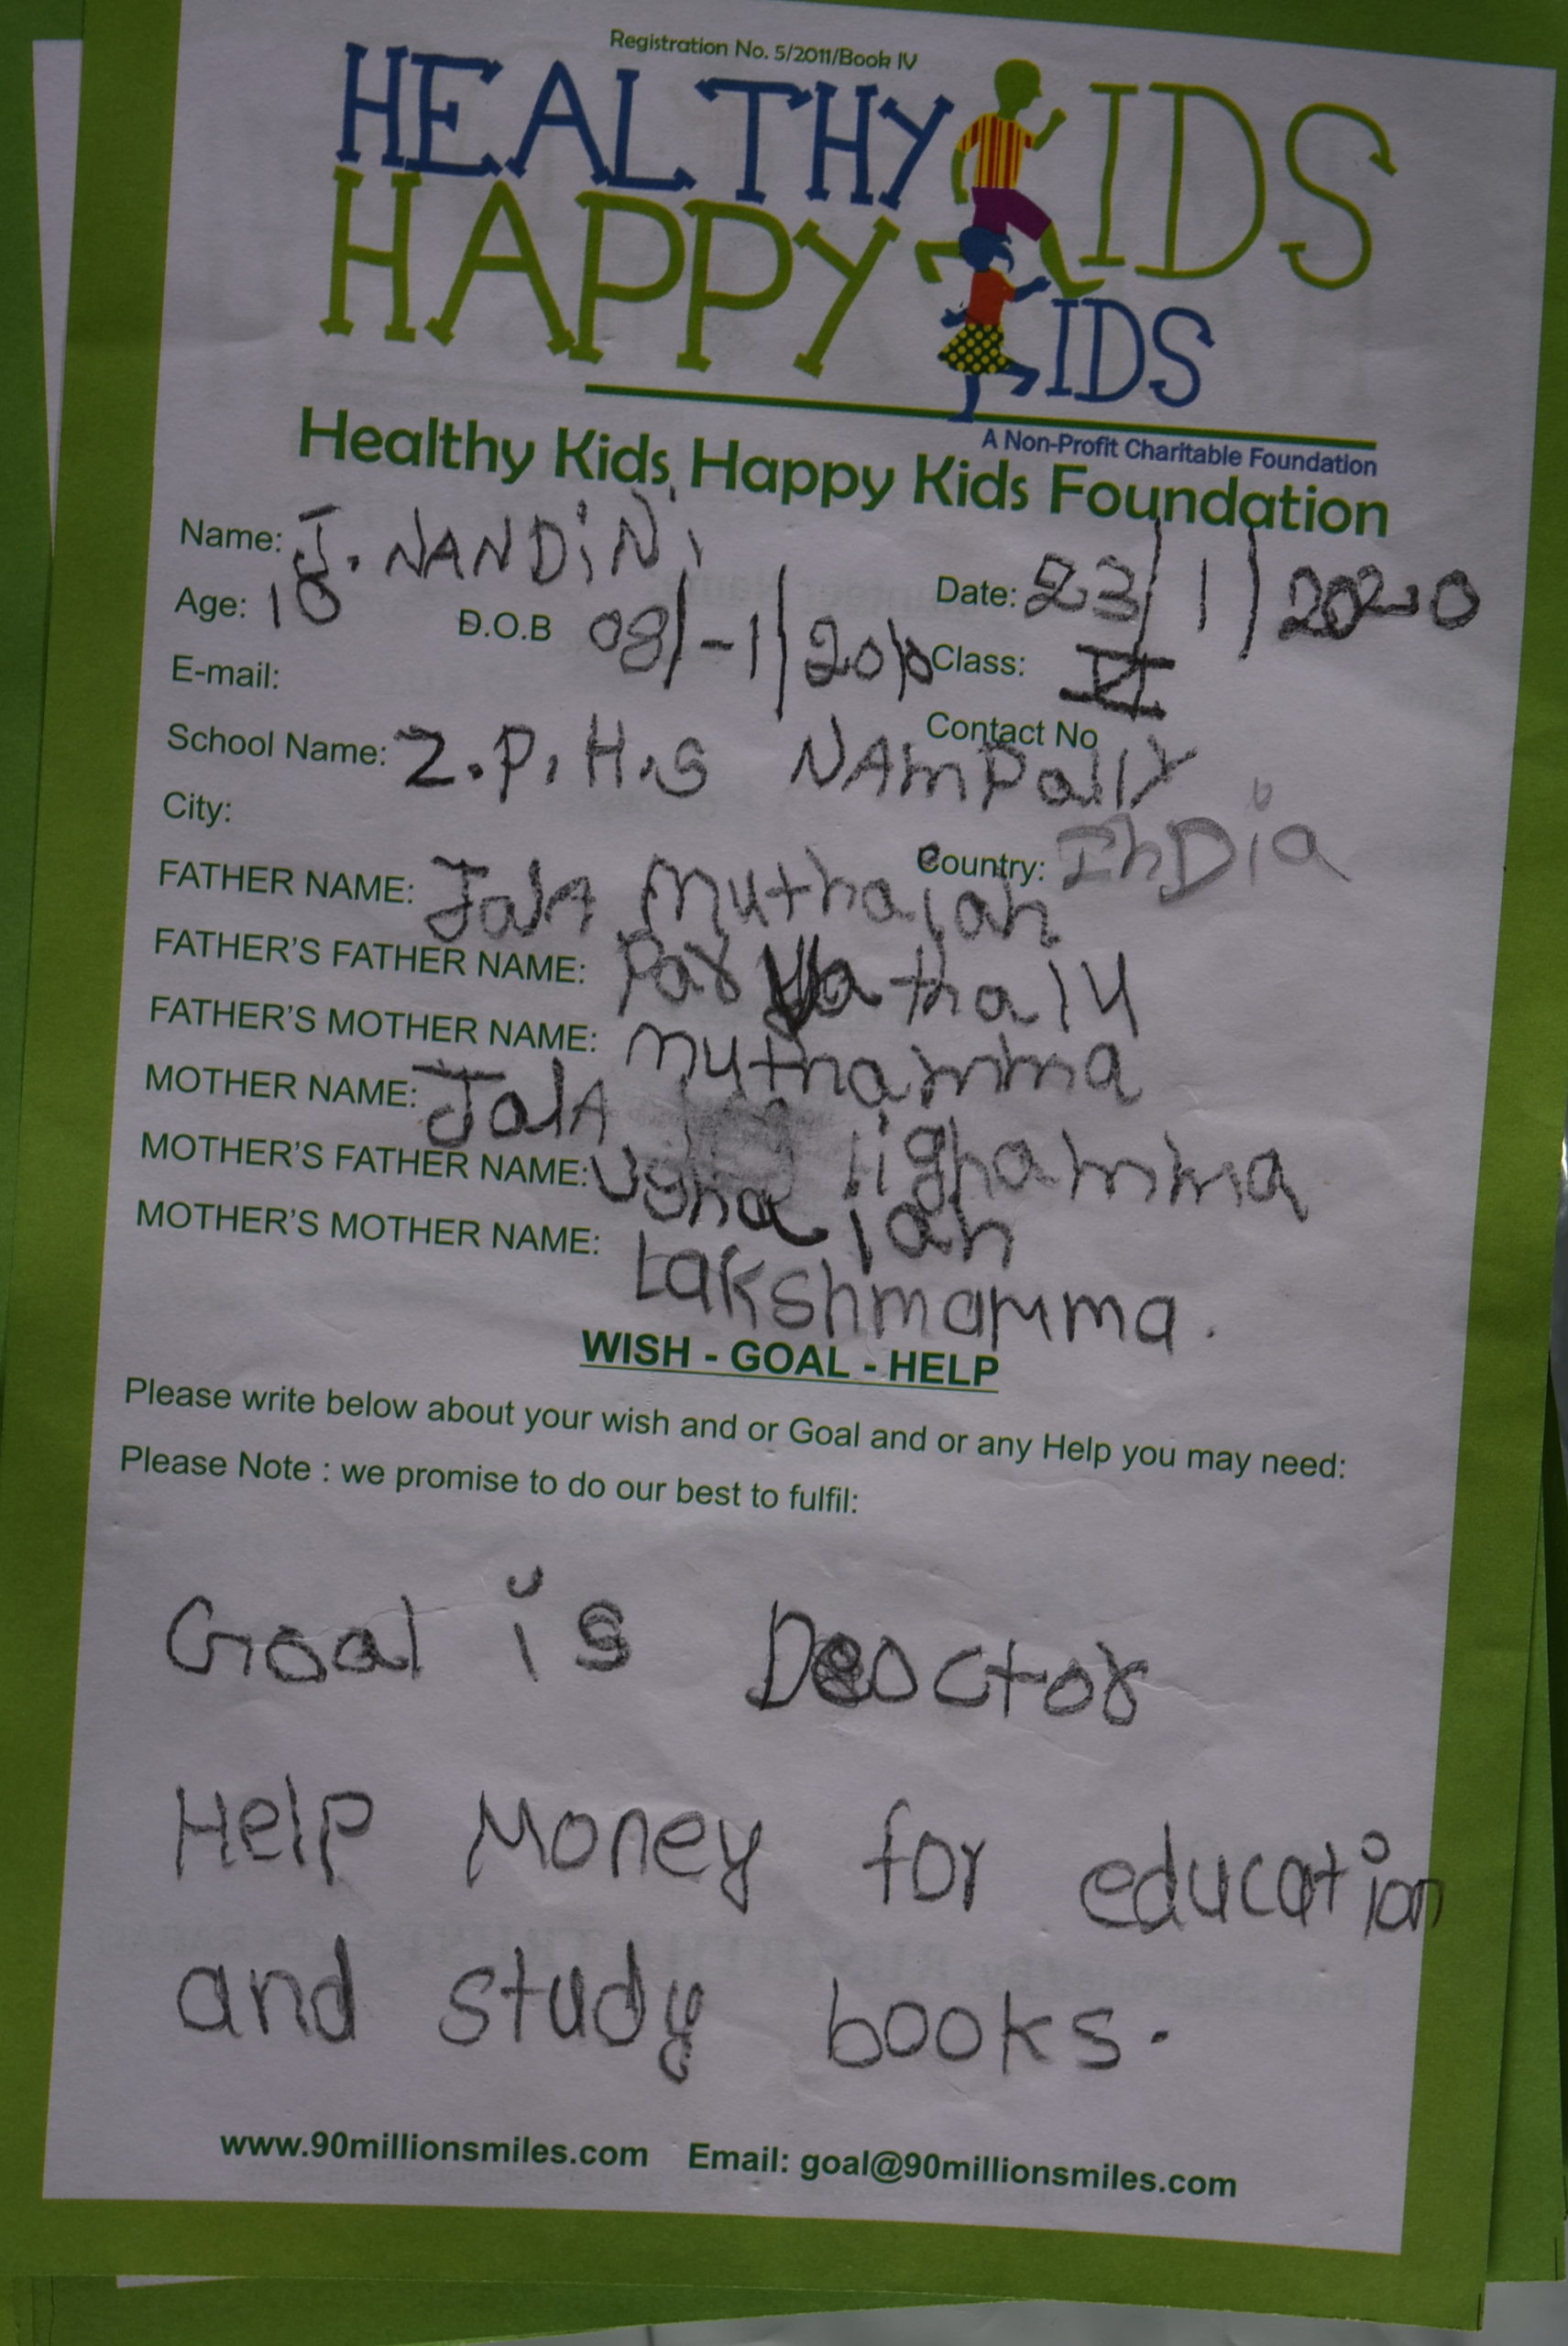 Registration No. 5/2011/Book IV
HEALTHY KIDS
HAPPY KIDS
A Non-Profit Charitable Foundation
Healthy Kids Happy Kids Foundation
Name: J. NANDiNi
Date: 23/1/2020
Age: 10 D.O.B 08/-1/2010 Class: VI
E-mail:
Contact No
School Name: Z.P.H.S NAmpally
City:
Country: InDia
FATHER NAME: JalA muthaiah
FATHER'S FATHER NAME: Parvathalu
FATHER'S MOTHER NAME: muthamma
MOTHER NAME: JalA lighamma
MOTHER'S FATHER NAME:
MOTHER'S MOTHER NAME: Lakshmamma.
WISH - GOAL - HELP
Please write below about your wish and or Goal and or any Help you may need:
Please Note : we promise to do our best to fulfil:
Goal is Doctor
Help Money for education
and study books.
www.90millionsmiles.com Email: goal@90millionsmiles.com